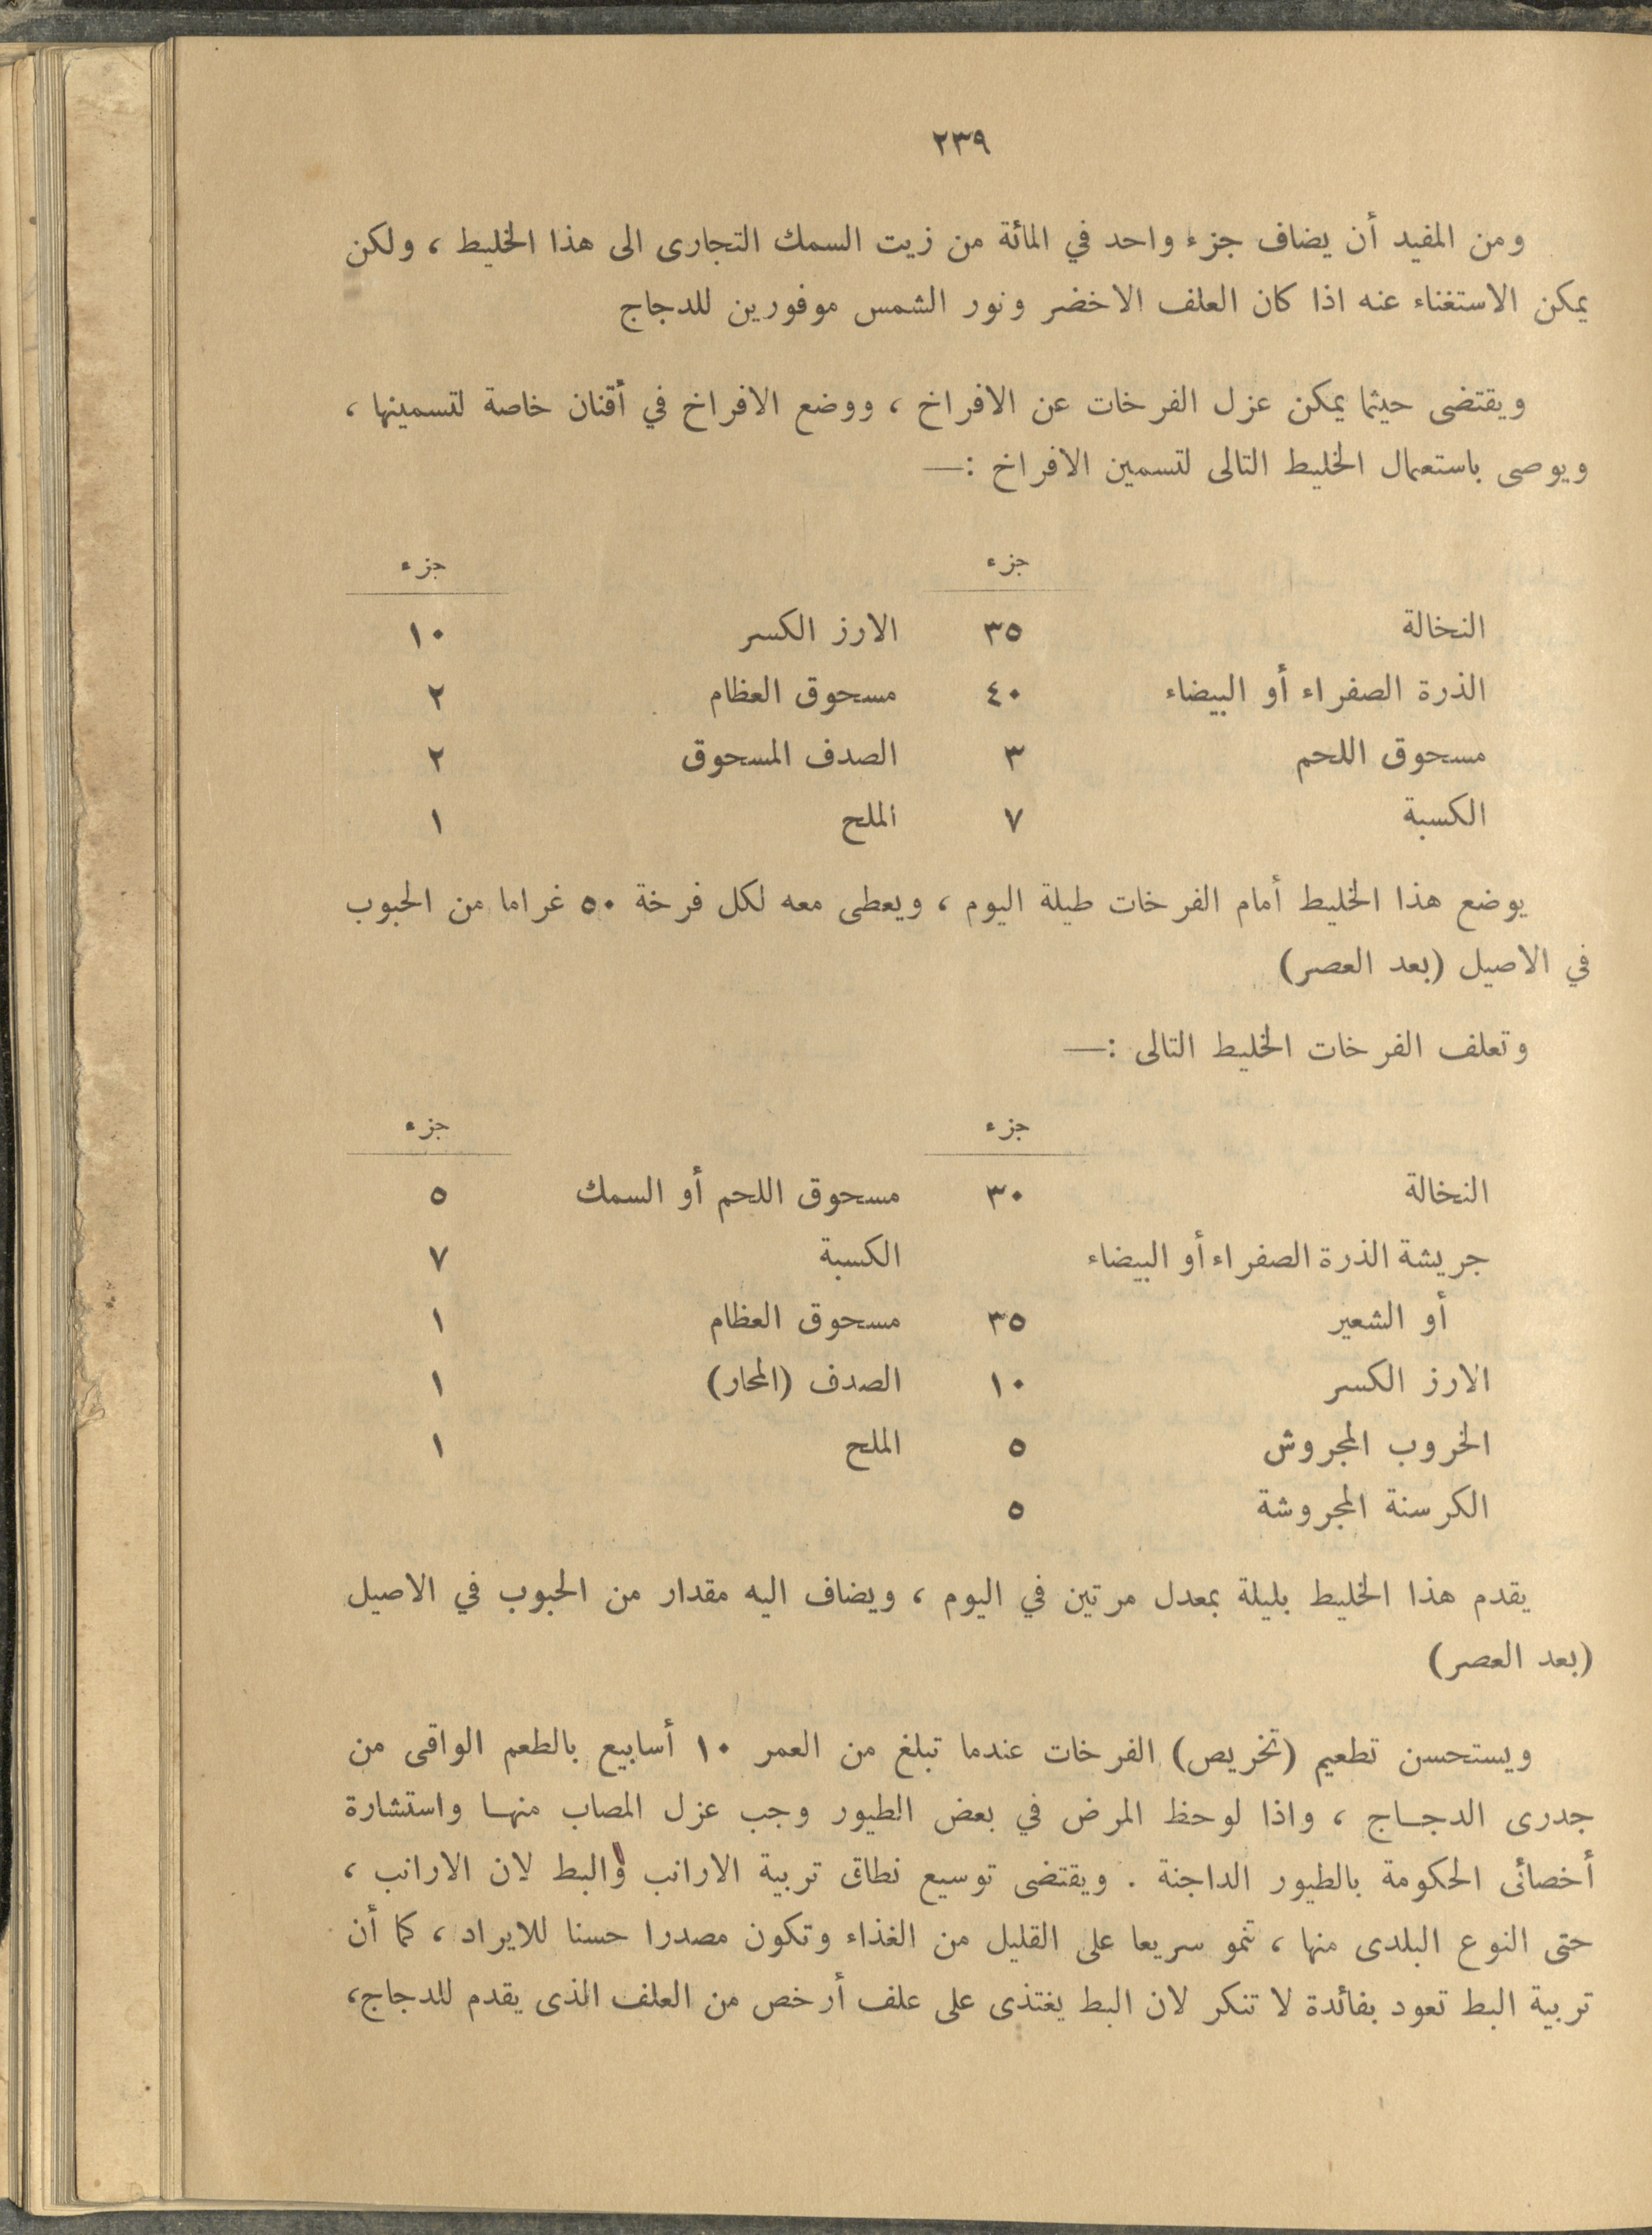 ٢٣٩
ومن المفيد أن يضاف جزء واحد في المائة من زيت السمك التجارى الى هذا الخليط ، ولكن
يمكن الاستغناء عنه اذا كان العلف الاخضر ونور الشمس موفورين للدجاج
ويقتضى حيثما يمكن عزل الفرخات عن الافراخ ، ووضع الافراخ في أقنان خاصة لتسمينها ،
ويوصى باستعمال الخليط التالى لتسمين الافراخ :—
جزء جزء
النخالة ٣٥ الارز الكسر ١٠
الذرة الصفراء أو البيضاء ٤٠ مسحوق العظام ٢
مسحوق اللحم ٣ الصدف المسحوق ٢
الكسبة ٧ الملح ١
يوضع هذا الخليط أمام الفرخات طيلة اليوم ، ويعطى معه لكل فرخة ٥٠ غراما من الحبوب
في الاصيل (بعد العصر)
وتعلف الفرخات الخليط التالى :—
جزء جزء
النخالة ٣٠ مسحوق اللحم أو السمك ٥
جريشة الذرة الصفراء أو البيضاء الكسبة ٧
أو الشعير ٣٥ مسحوق العظام ١
الارز الكسر ١٠ الصدف (المحار) ١
الخروب المجروش ٥ الملح ١
الكرسنة المجروشة ٥
يقدم هذا الخليط بليلة بمعدل مرتين في اليوم ، ويضاف اليه مقدار من الحبوب في الاصيل
(بعد العصر)
ويستحسن تطعيم (تخريص) الفرخات عندما تبلغ من العمر ١٠ أسابيع بالطعم الواقى من
جدرى الدجاج ، واذا لوحظ المرض في بعض الطيور وجب عزل المصاب منها واستشارة
أخصائى الحكومة بالطيور الداجنة . ويقتضى توسيع نطاق تربية الارانب والبط لان الارانب ،
حتى النوع البلدى منها ، تنمو سريعا على القليل من الغذاء وتكون مصدرا حسنا للايراد ، كما أن
تربية البط تعود بفائدة لا تنكر لان البط يغتذى على علف أرخص من العلف الذى يقدم للدجاج،